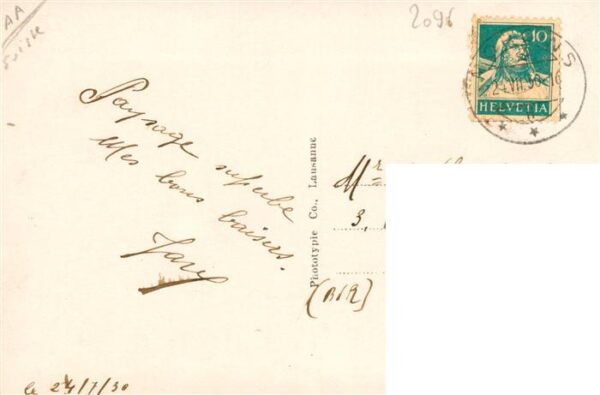 AA
Suisse
2096
10
HELVETIA
24.VII.30-16
Paysage superbe
Mes bons baisers.
Phototypie Co., Lausanne
Mr
3,
(B&R)
le 24/7/30